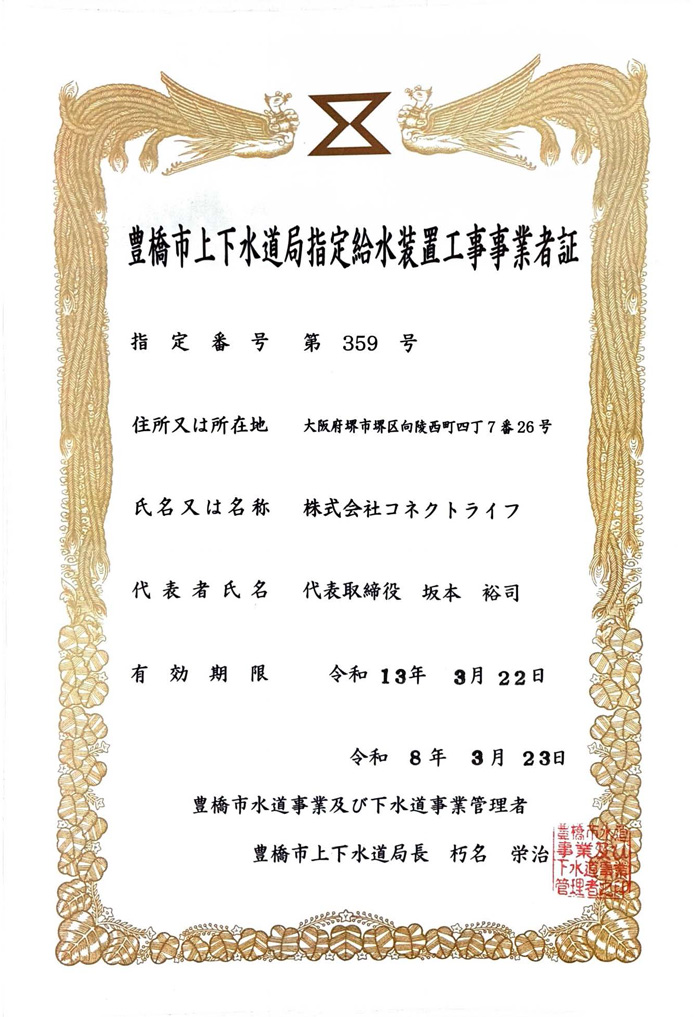 豊橋市上下水道局指定給水装置工事事業者証
指定番号 第 359 号
住所又は所在地 大阪府堺市堺区向陵西町四丁7番26号
氏名又は名称 株式会社コネクトライフ
代表者氏名 代表取締役 坂本 裕司
有効期限 令和 13年 3月 22日
令和 8年 3月 23日
豊橋市水道事業及び下水道事業管理者
豊橋市上下水道局長 朽名 栄治
豊橋市水道
事業及び
下水道事業
管理者之印